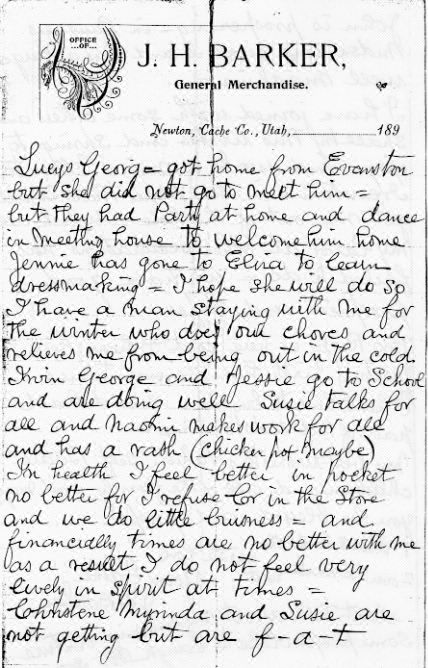 OFFICE
...OF...
J. H. BARKER,
General Merchandise.
Newton, Cache Co., Utah, 189
Lucys George = got home from Evanston
but she did not go to meet him =
but they had Party at home and dance
in Meeting house to welcome him home
Jennie has gone to Elvia to learn
dressmaking = I hope she will do so
I have a man staying with me for
the winter who does our chores and
relieves me from being out in the cold
Irvin George and Jessie go to School
and are doing well Susie talks for
all and Naomi makes work for all
and has a rash (chicken pox maybe)
In health I feel better in pocket
no better for I refuse Cr in the Store
and we do little buisness = and
financially times are no better with me
as a result I do not feel very
lively in spirit at times =
Murinda and Susie are
not getting but are f-a-t